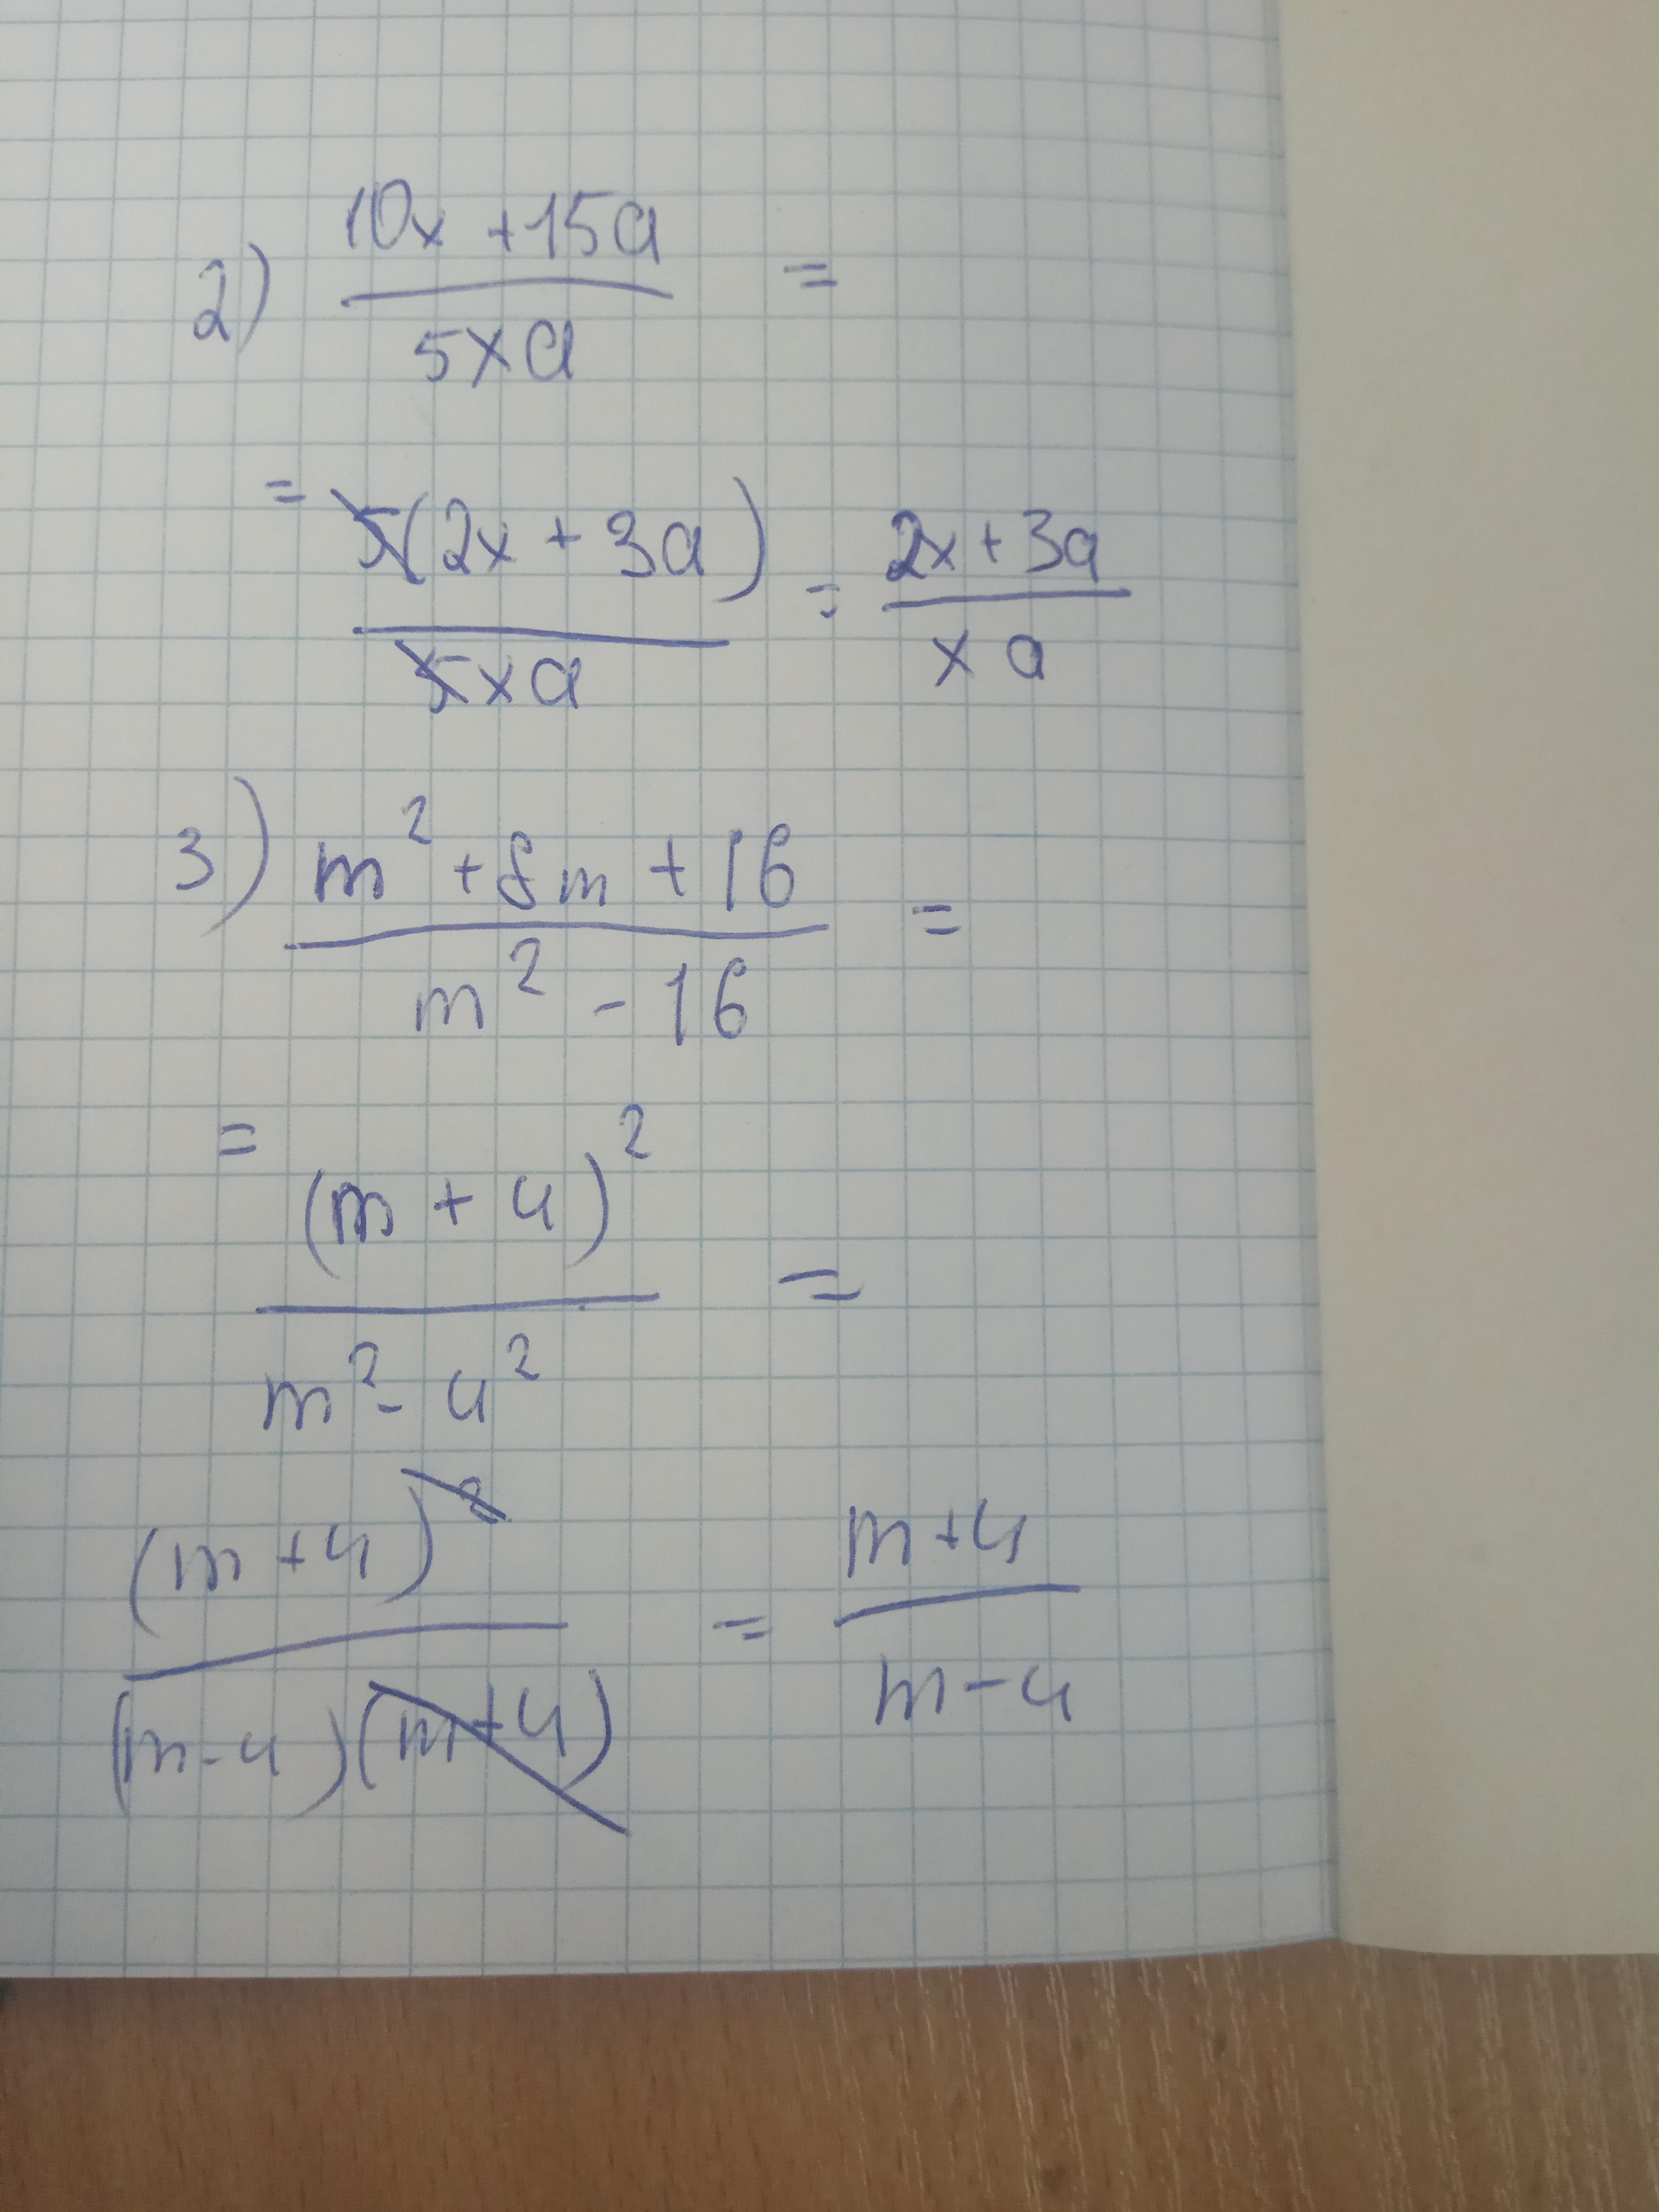 2) 10x + 15a / 5xa =
= 5(2x + 3a) / 5xa = 2x + 3a / xa
3) m² + 8m + 16 / m² - 16 =
= (m + 4)² / m² - 4² =
(m + 4)² / (m - 4)(m + 4) = m + 4 / m - 4